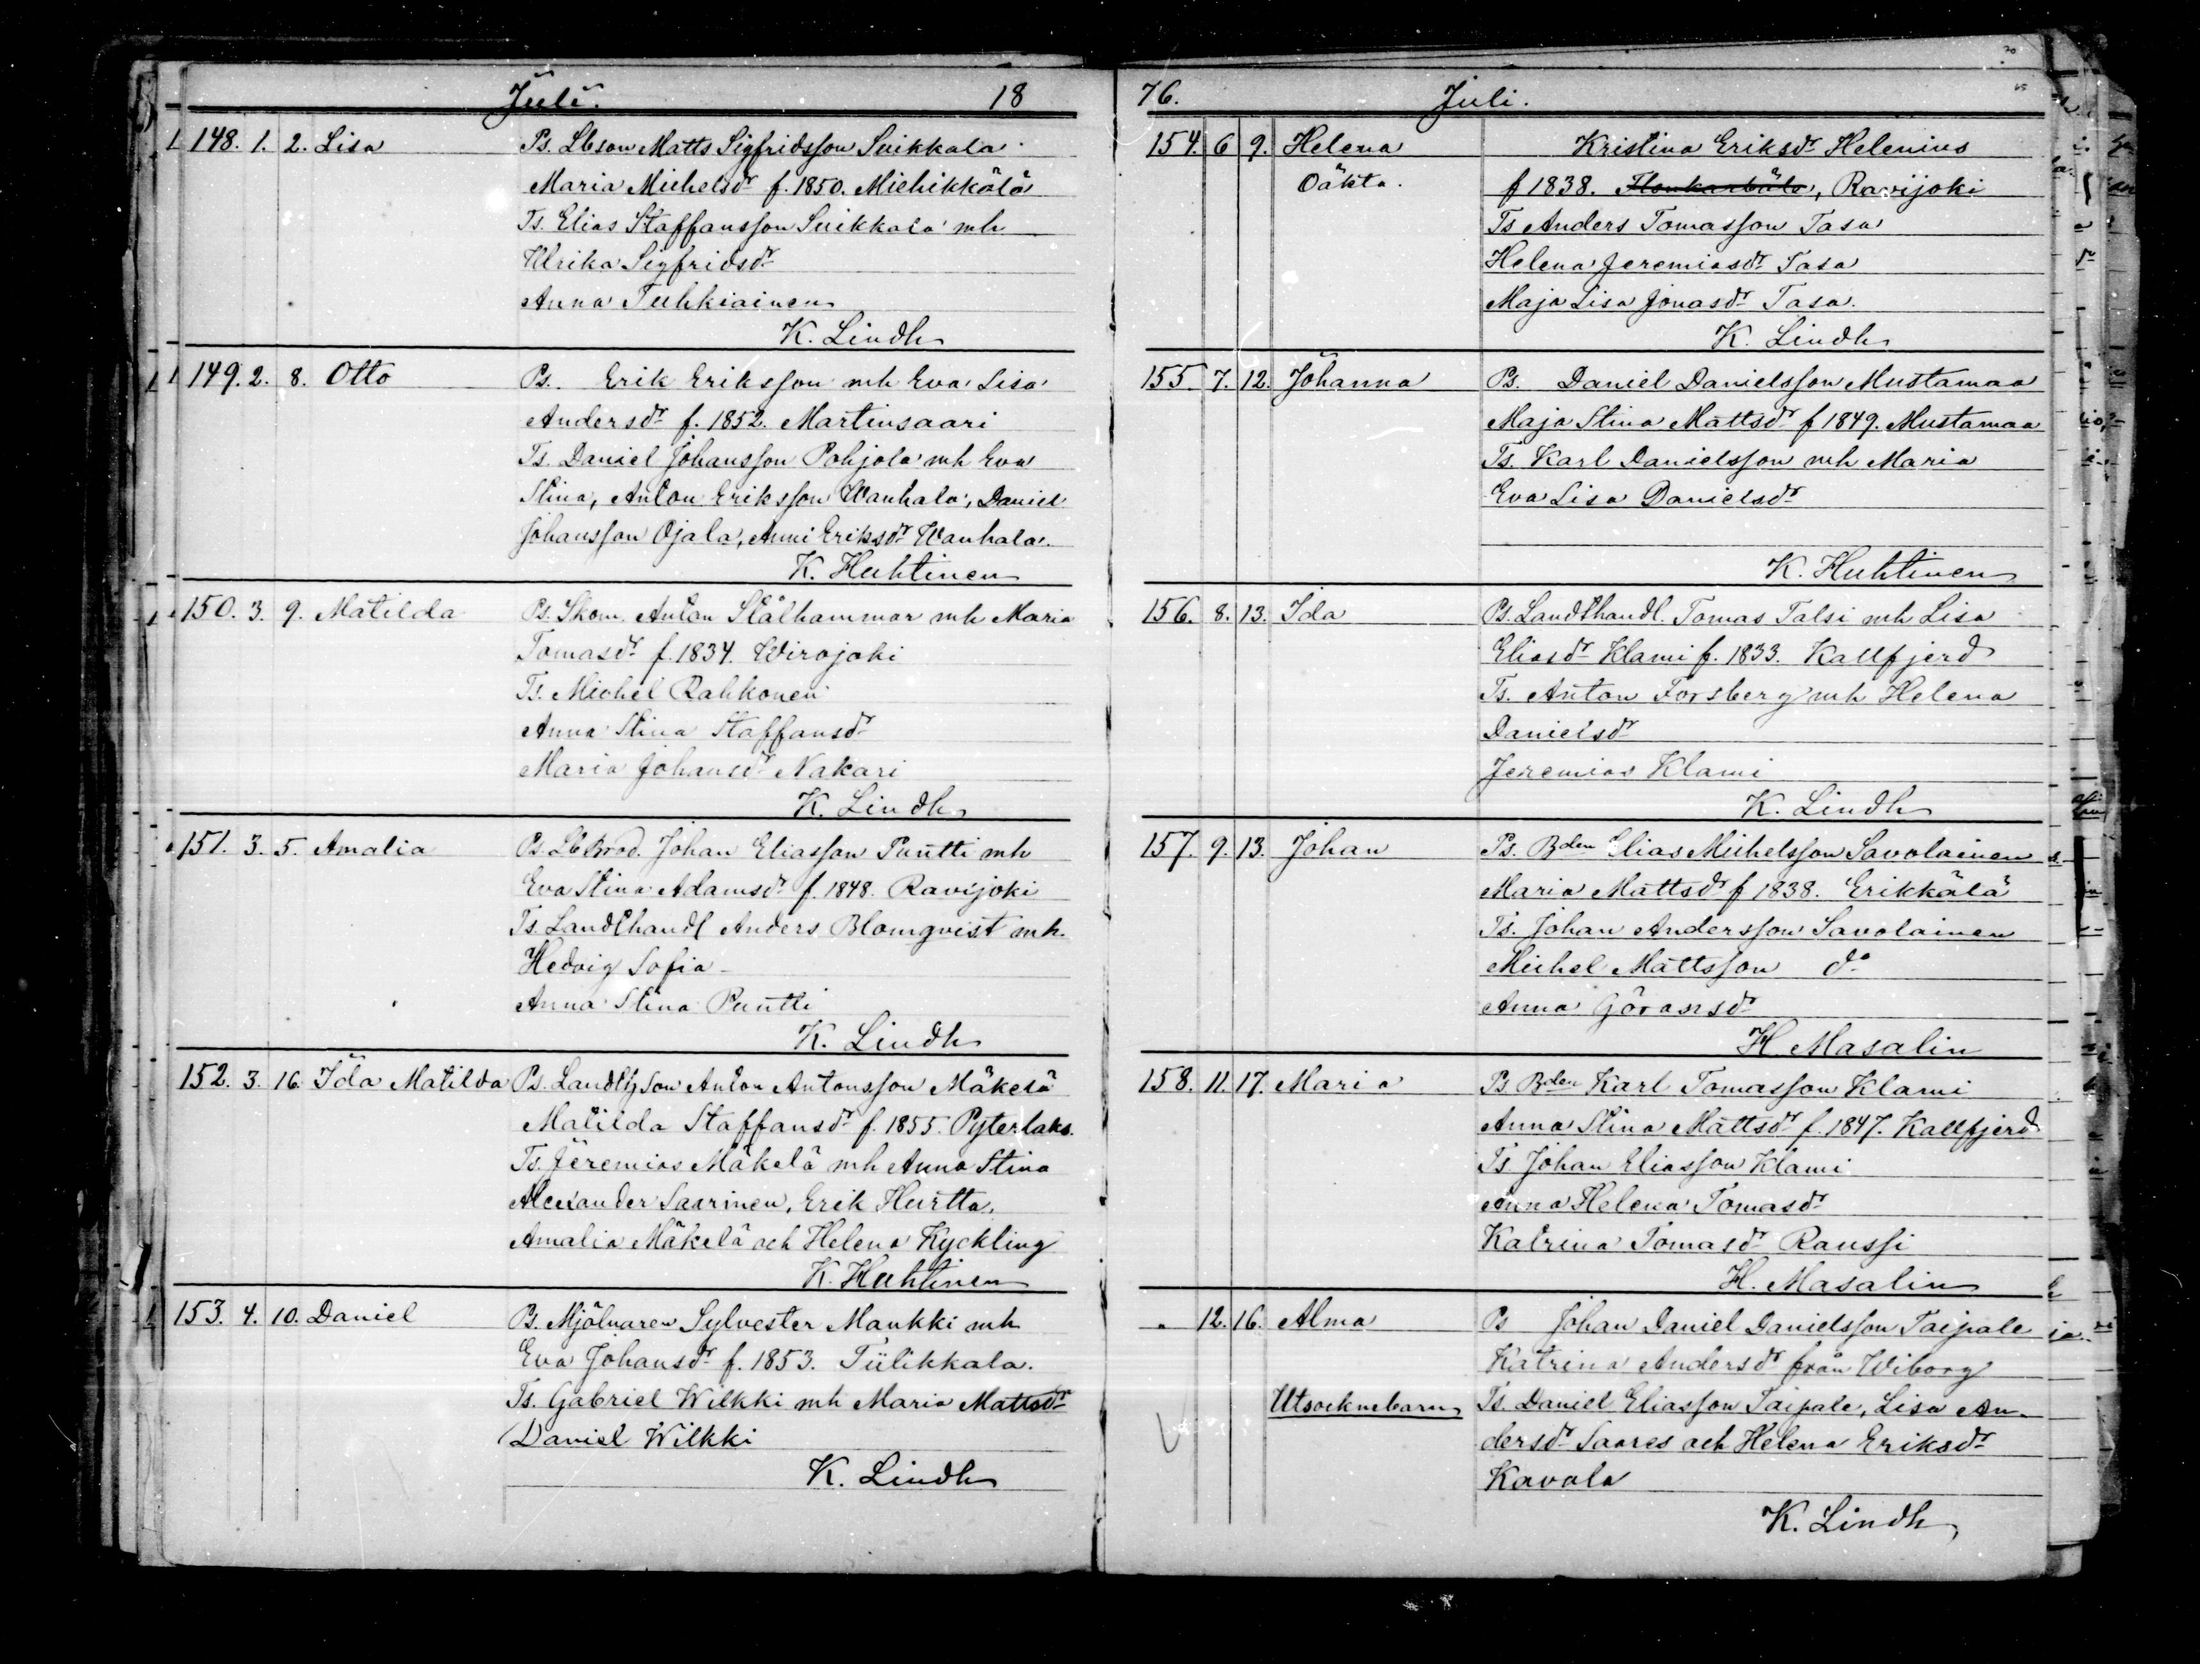 Juli. 18
148. 1. 2. Lisa Ps. Lbson Matts Sigfridsson Suikkala
Maria Michelsdr f. 1850. Miehikkälä
Ts. Elias Staffansson Suikkala mh
Ulrika Sigfridsdr
Anna Tuhkiainen
K. Lindh
149. 2. 8. Otto Ps. Erik Eriksson mh Eva Lisa
Andersdr f. 1852. Martinsaari
Ts. Daniel Johansson Pohjola mh Eva
Stina, Anton Eriksson Wanhala, Daniel
Johansson Ojala, Anni Eriksdr Wanhala.
K. Huhtinen
150. 3. 9. Matilda Ps. Skom. Anton Stålhammar mh Maria
Tomasdr f. 1834. Wirojoki
Ts. Michel Rahkonen
Anna Stina Staffansdr
Maria Johansdr Nakari
K. Lindh
151. 3. 5. Amalia Ps. Lb Brod. Johan Eliasson Puutti mh
Eva Stina Adamsdr f. 1848. Ravijoki
Ts. Landthandl Anders Blomqvist mh.
Hedvig Sofia
Anna Stina Puutti
K. Lindh
152. 3. 16. Ida Matilda Ps. Son Anton Antonsson Mäkelä
Matilda Staffansdr f. 1855. Pyterlaks.
Ts. Jeremias Mäkelä mh Anna Stina
Alexander Saarinen, Erik Hurtta,
Amalia Mäkelä och Helena Kyckling
K. Huhtinen
153. 4. 10. Daniel Ps. Mjölnaren Sylvester Mankki mh
Eva Johansdr f. 1853. Tiilikkala.
Ts. Gabriel Wilkki mh Maria Mattsdr
Daniel Wilkki
K. Lindh
76. Juli.
154. 6 9. Helena Kristina Eriksdr Helenius
Oäkta. f 1838. Ravijoki
Ts Anders Tomasson Tasa
Helena Jeremiasdr Tasa
Maja Lisa Jonasdr Tasa.
K. Lindh
155. 7. 12. Johanna Ps. Daniel Danielsson Mustamaa
Maja Stina Mattsdr f 1849. Mustamaa
Ts. Karl Danielsson mh Maria
Eva Lisa Danielsdr
K. Huhtinen
156. 8. 13. Ida Ps. Landthandl. Tomas Talsi mh Lisa
Eliasdr Klami f. 1833. Kallfjerd
Ts. Anton Forsberg mh Helena
Danielsdr
Jeremias Klami
K. Lindh
157. 9. 13. Johan Ps. Bden Elias Michelsson Savolainen
Maria Mattsdr f 1838. Erikkälä
Ts. Johan Andersson Savolainen
Michel Mattsson do
Anna Göransdr
H. Masalin
158. 11. 17. Maria Ps Bden Karl Tomasson Klami
Anna Stina Mattsdr f. 1847. Kallfjerd
Ts Johan Eliasson Klami
Anna Helena Tomasdr
Katrina Tomasdr Raussi
H. Masalin
" 12. 16. Alma Ps Johan Daniel Danielsson Taipale
Katrina Andersdr från Wiborg
Utsocknebarn Ts. Daniel Eliasson Taipale, Lisa An-
dersdr Saares och Helena Eriksdr
Kavala
K. Lindh